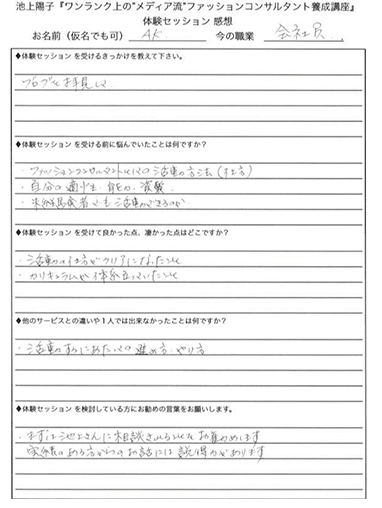 池上陽子『ワンランク上の"メディア流"ファッションコンサルタント養成講座』
体験セッション 感想
お名前（仮名でも可） AK 今の職業 会社員
◆体験セッション を受けるきっかけを教えて下さい。
ブログを拝見して
◆体験セッション を受ける前に悩んでいたことは何ですか？
・ファッションコンサルタントとしての活動の方法（仕方）
・自分の適性、能力、資質
・未経験者でも活動ができるのか
◆体験セッション を受けて良かった点、凄かった点はどこですか？
・活動の仕方がクリアになったこと
・カリキュラムが体系立っていたこと
◆他のサービスとの違いや１人では出来なかったことは何ですか？
・活動するにあたっての進め方、やり方
◆体験セッション を検討している方にお勧めの言葉をお願いします。
・まずは池上さんに相談されることをお勧めします
実績のある方からのお話には説得力があります